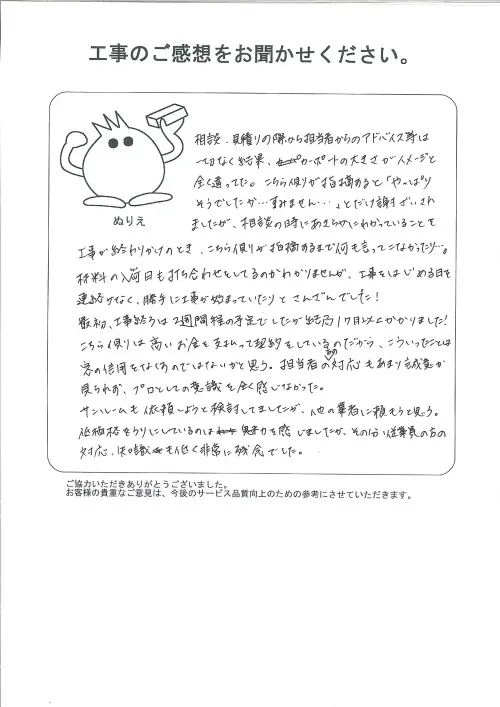 工事のご感想をお聞かせください。
ぬりえ
相談、見積りの際から担当者からのアドバイス等は
一切なく結果、カーポートの大きさがイメージと
全く違ってた。こちら側が指摘すると「やっぱり
そうでしたか…すみません…」とだけ謝ざいされ
ましたが、相談の時にあきらかにわかっていることを
工事が終わりかけのとき、こちら側が指摘するまで何も言ってこなかったり…。
材料の入荷日も打ち合わせをしてるのかわかりませんが、工事をはじめる日を
連絡がなく、勝手に工事が始まっていたりとさんざんでした!
最初、工事終了は2週間程の予定でしたが結局1ヶ月以上かかりました!
こちら側は高いお金を支払って契約をしているのだから、こういったことは
客の信用をなくすのではないかと思う。担当者の対応もあまり誠意が
見られず、プロとしての意識を全く感じなかった。
サンルームも依頼しようと検討してましたが、他の業者に頼もうと思う。
低価格をうりにしているのは魅力を感じましたが、その分従業員の方の
対応、知識も低く非常に残念でした。
ご協力いただきありがとうございました。
お客様の貴重なご意見は、今後のサービス品質向上のための参考にさせていただきます。